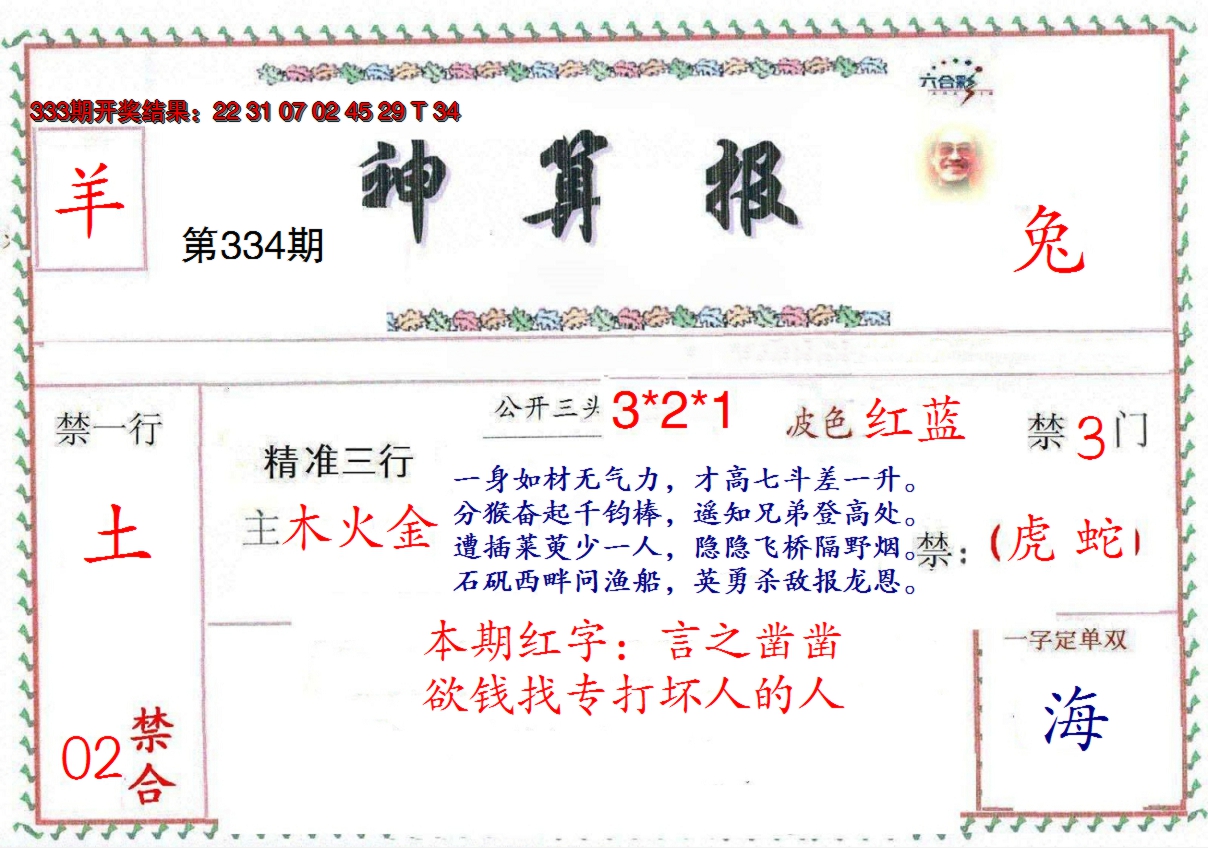 六合彩
333期开奖结果：22 31 07 02 45 29 T 34
羊
神算报
第334期
兔
禁一行
土
02
禁合
精准三行
主木火金
公开三头 3*2*1
波色 红蓝
禁3门
一身如材无气力，才高七斗差一升。
分猴奋起千钧棒，遥知兄弟登高处。
遭插菜萸少一人，隐隐飞桥隔野烟。
石矶西畔问渔船，英勇杀敌报龙恩。
禁：（虎 蛇）
本期红字：言之凿凿
欲钱找专打坏人的人
一字定单双
海